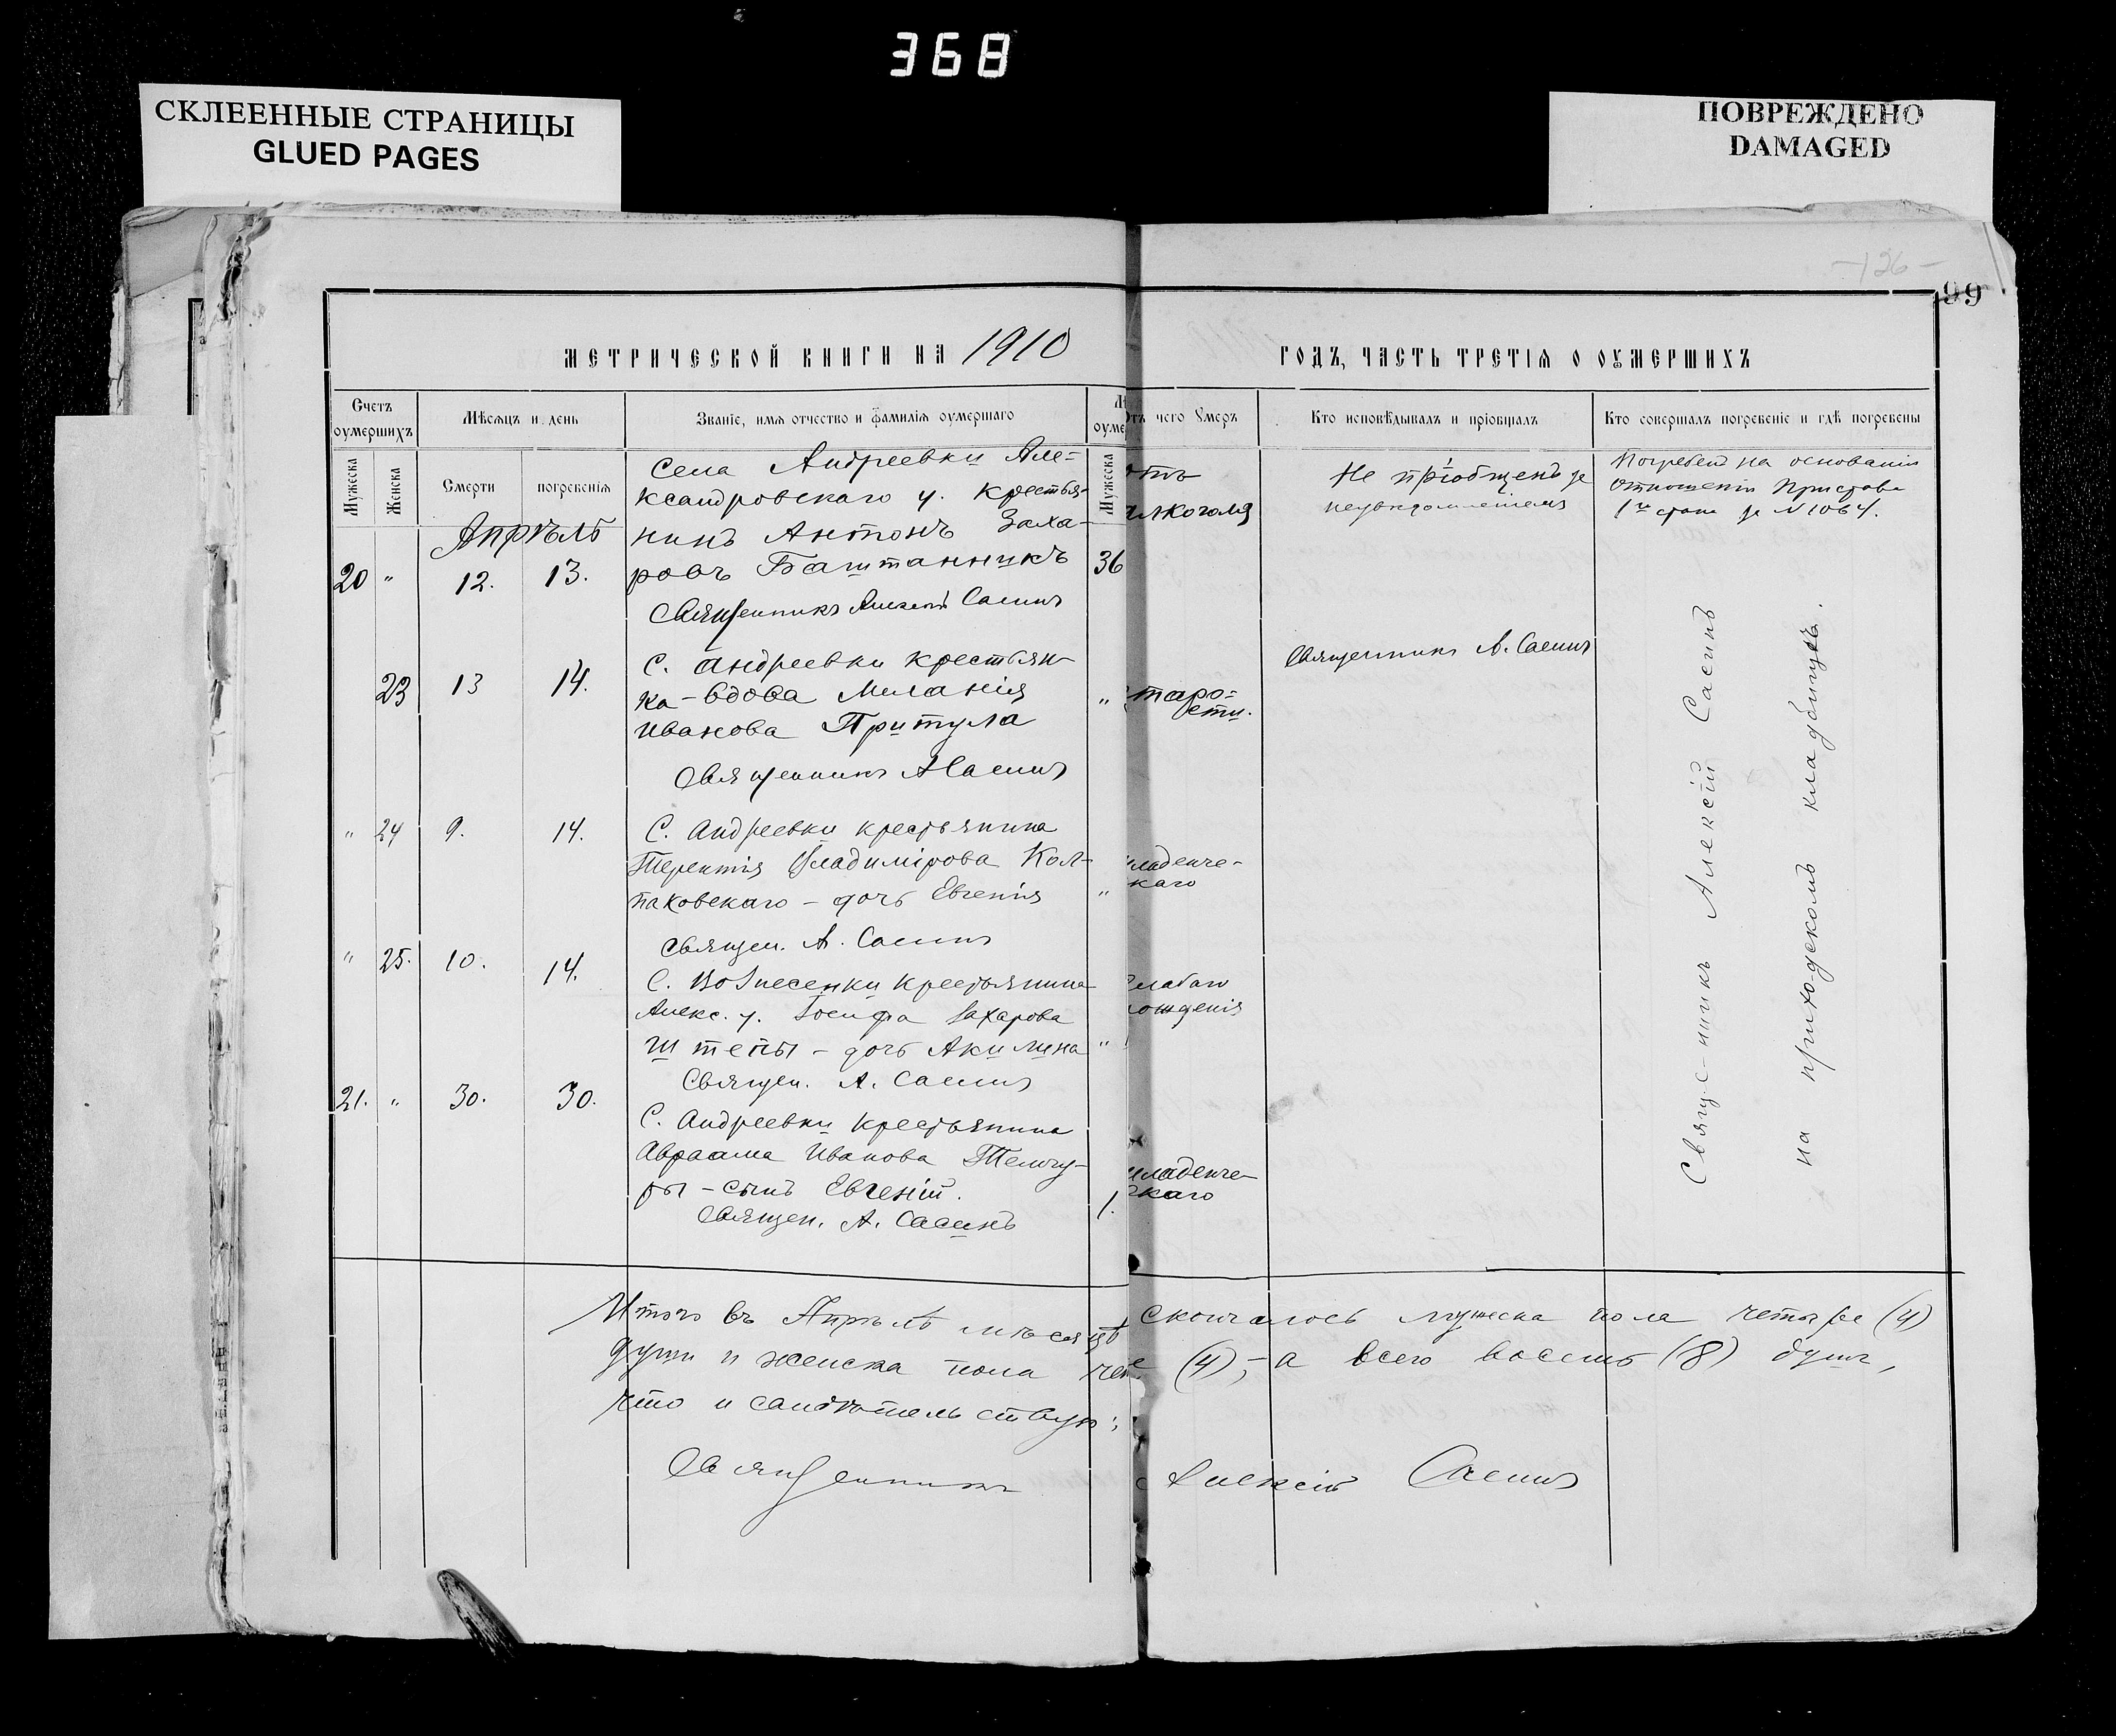 368
СКЛЕЕННЫЕ СТРАНИЦЫ
GLUED PAGES
ПОВРЕЖДЕНО
DAMAGED
-126-
99
МЕТРИЧЕСКОЙ КНИГИ НА 1910
ГОДЪ, ЧАСТЬ ТРЕТІѦ О ОУМЕРШИХЪ
Счетъ
оумершихъ
Мѣсяцъ и день
Званіе, имя отчество и фамилія оумершаго
оуме
чего Умеръ
Кто исповѣдывалъ и пріобщалъ
Кто совершалъ погребеніе и гдѣ погребены
Мужеска
Женска
Смерти
погребенія
Мужеска
Апрѣль
20 " 12. 13.
Села Андреевки Але-
ксандровскаго у. крестья-
нинъ Антонъ Заха-
ровъ Баштанникъ
Священникъ Алексій Сасинъ
36
отъ
алкоголя
Не пріобщенъ за
неувѣдомленіемъ
Погребенъ на основаніи
отношенія Пристава
1го стана за №1064.
23 13 14.
С. Андреевки крестьян-
ка-вдова Меланія
Иванова Притула
Священникъ А Сасинъ
"
таро-
сти.
Священникъ А. Сасинъ
" 24 9. 14.
С. Андреевки крестьянина
Терентія Владимірова Кол-
паковскаго - дочь Евгенія
Священ. А. Сасинъ
"
младенче-
скаго
" 25. 10. 14.
С. Вознесенки крестьянина
Алекс. у. Іосифа Захарова
Штепы - дочь Акилина
Священ. А. Сасинъ
"
Слабаго
рожденія
21. " 30. 30.
С. Андреевки крестьянина
Авраама Иванова
ры - сынъ Евгеній.
Священ. А. Сасинъ
1.
младенче-
скаго
Священникъ Алексій Сасинъ
на приходскомъ кладбищѣ.
Итого въ Апрѣлѣ мѣсяцѣ скончалось мужеска пола четыре (4)
души и женска пола чет (4), - а всего восемь (8) душъ,
что и свидѣтельствую:
Священникъ Алексій Сасинъ